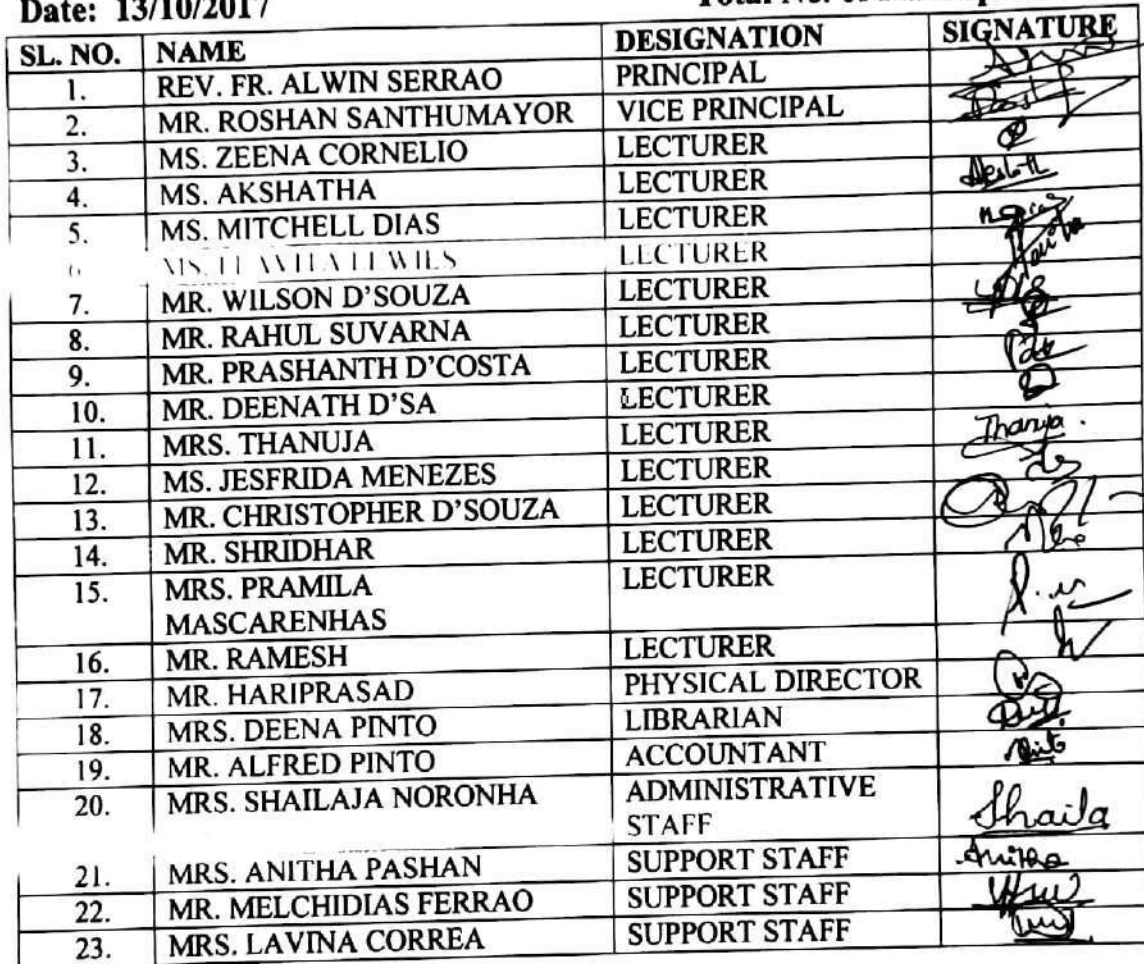 Date: 13/10/2017 Total No. of
SL. NO. NAME DESIGNATION SIGNATURE
1. REV. FR. ALWIN SERRAO PRINCIPAL
2. MR. ROSHAN SANTHUMAYOR VICE PRINCIPAL
3. MS. ZEENA CORNELIO LECTURER
4. MS. AKSHATHA LECTURER
5. MS. MITCHELL DIAS LECTURER
6 MS. LECTURER
7. MR. WILSON D'SOUZA LECTURER
8. MR. RAHUL SUVARNA LECTURER
9. MR. PRASHANTH D'COSTA LECTURER
10. MR. DEENATH D'SA LECTURER
11. MRS. THANUJA LECTURER Thanuja.
12. MS. JESFRIDA MENEZES LECTURER
13. MR. CHRISTOPHER D'SOUZA LECTURER
14. MR. SHRIDHAR LECTURER
15. MRS. PRAMILA LECTURER
MASCARENHAS
16. MR. RAMESH LECTURER
17. MR. HARIPRASAD PHYSICAL DIRECTOR
18. MRS. DEENA PINTO LIBRARIAN
19. MR. ALFRED PINTO ACCOUNTANT
20. MRS. SHAILAJA NORONHA ADMINISTRATIVE
STAFF Shaila
21. MRS. ANITHA PASHAN SUPPORT STAFF Anitha
22. MR. MELCHIDIAS FERRAO SUPPORT STAFF
23. MRS. LAVINA CORREA SUPPORT STAFF